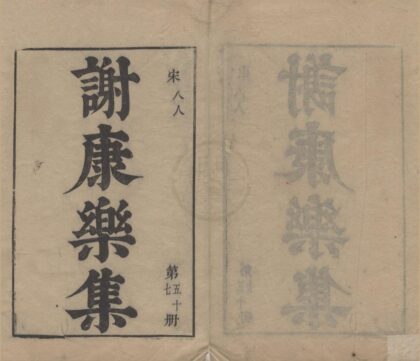 宋八人
謝康樂集
第五十七册